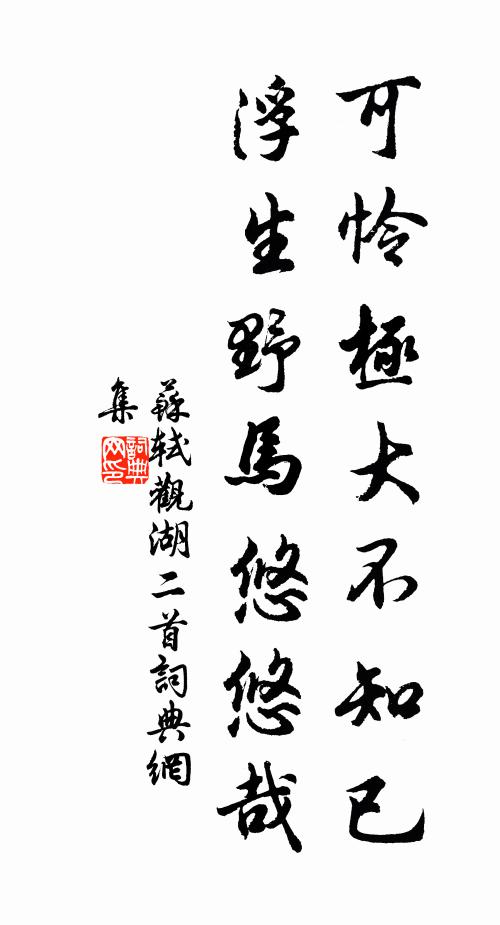 可怜極大不知已
浮生野馬悠悠哉
蘇軾觀湖二首詞典網
集
詞典
网印